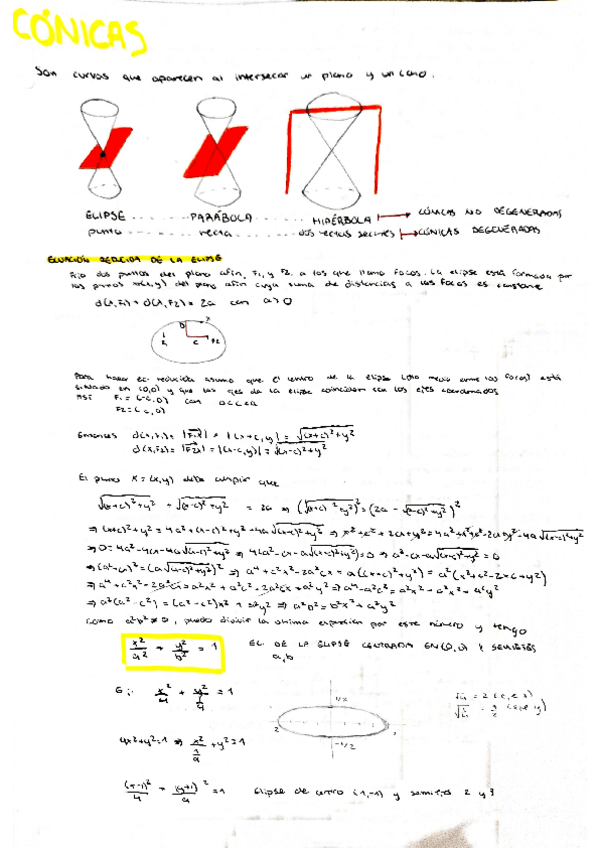 CÓNICAS
Son curvas que aparecen al intersecar un plano y un cono.
ELIPSE ........ PARÁBOLA ........ HIPÉRBOLA → CÓNICAS NO DEGENERADAS
punto ........ recta ........ dos rectas secantes → CÓNICAS DEGENERADAS
ECUACIÓN REDUCIDA DE LA ELIPSE
Fijo dos puntos del plano afín, F₁ y F₂, a los que llamo focos. La elipse está formada por
los puntos X(x,y) del plano afín cuya suma de distancias a los focos es constante
d(X,F₁) + d(X,F₂) = 2a con a > 0
Para hallar ec. reducida asumo que el centro de la elipse (pto medio entre los focos) está
situado en (0,0) y que los ejes de la elipse coinciden con los ejes coordenados
Así F₁ = (-c,0) con 0<c<a
F₂ = (c,0)
Entonces d(X,F₁) = |F₁X| = |(x+c,y)| = √(x+c)²+y²
d(X,F₂) = |F₂X| = |(x-c,y)| = √(x-c)²+y²
El punto X = (x,y) debe cumplir que
√(x+c)²+y² + √(x-c)²+y² = 2a ⇒ (√(x+c)²+y²)² = (2a - √(x-c)²+y²)²
⇒ (x+c)²+y² = 4a²+(x-c)²+y²-4a√(x-c)²+y² ⇒ x²+c²+2cx+y² = 4a²+x²+c²-2cx+y²-4a√(x-c)²+y²
⇒ 0 = 4a²-4cx-4a√(x-c)²+y² ⇒ 4(a²-cx-a√(x-c)²+y²) = 0 ⇒ a²-cx-a√(x-c)²+y² = 0
⇒ (a²-cx)² = (a√(x-c)²+y²)² ⇒ a⁴+c²x²-2a²cx = a²((x-c)²+y²) = a²(x²+c²-2xc+y²)
⇒ a⁴+c²x²-2a²cx = a²x²+a²c²-2a²cx+a²y² ⇒ a⁴-a²c² = a²x²-c²x²+a²y²
⇒ a²(a²-c²) = (a²-c²)x²+a²y² ⇒ a²b² = b²x²+a²y²
Como a²b² ≠ 0, puedo dividir la última expresión por este número y tengo
x²/a² + y²/b² = 1 EC DE LA ELIPSE CENTRADA EN (0,0) Y SEMIEJES
a, b
Ej: x²/4 + y²/(1/4) = 1
√4 = 2 (eje x)
1/2
2
-1/2
4x²+y²=1 ⇒ x²/(1/4) + y² = 1
(x-1)²/4 + (y+1)²/9 = 1 Elipse de centro (1,-1) y semiejes 2 y 3